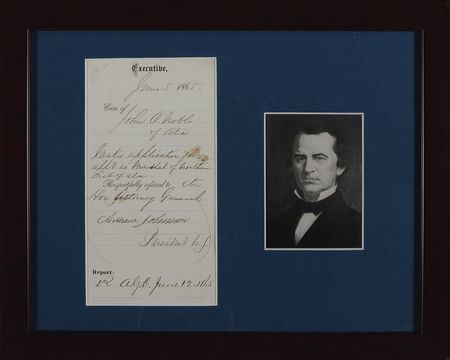 Executive,
June 5 1865.
Case of
John A Noble
of Ala
Makes application for
appt as Marshal of Northern
Dist of Ala.
Respectfully referred to the
Hon Attorney General
Andrew Johnson
President U.S
Report:
A.G.O. June 12. 1865